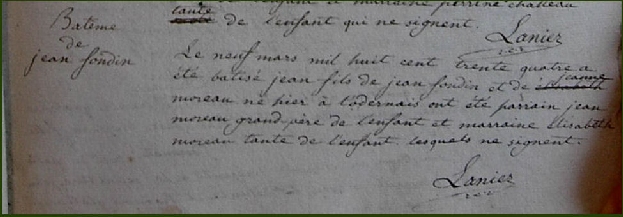 de l'enfant qui ne signent.
Lanier
Batême
de
jean fondin
Le neuf mars mil huit cent trente quatre a
été batisé jean fils de jean fondin et de jeanne
moreau né hier à todernais ont été parrain jean
moreau grand-père de l'enfant et marraine élisabeth
moreau tante de l'enfant lesquels ne signent.
Lanier